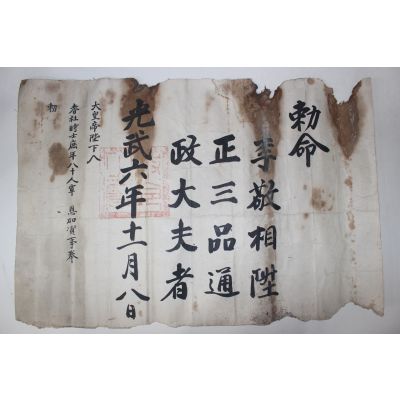 勅命
李敬相陞
正三品通
政大夫者
光武六年十一月八日
大皇帝陛下入
耆社時士庶年八十人 恩加資事奉
勅